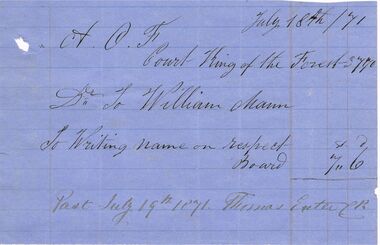 July 18th /71
A. O. F.
Court King of the Forest 2770
Dr. To William Mann
To Writing name on respect
Board 7 " 6
July 19th 1871 Thomas